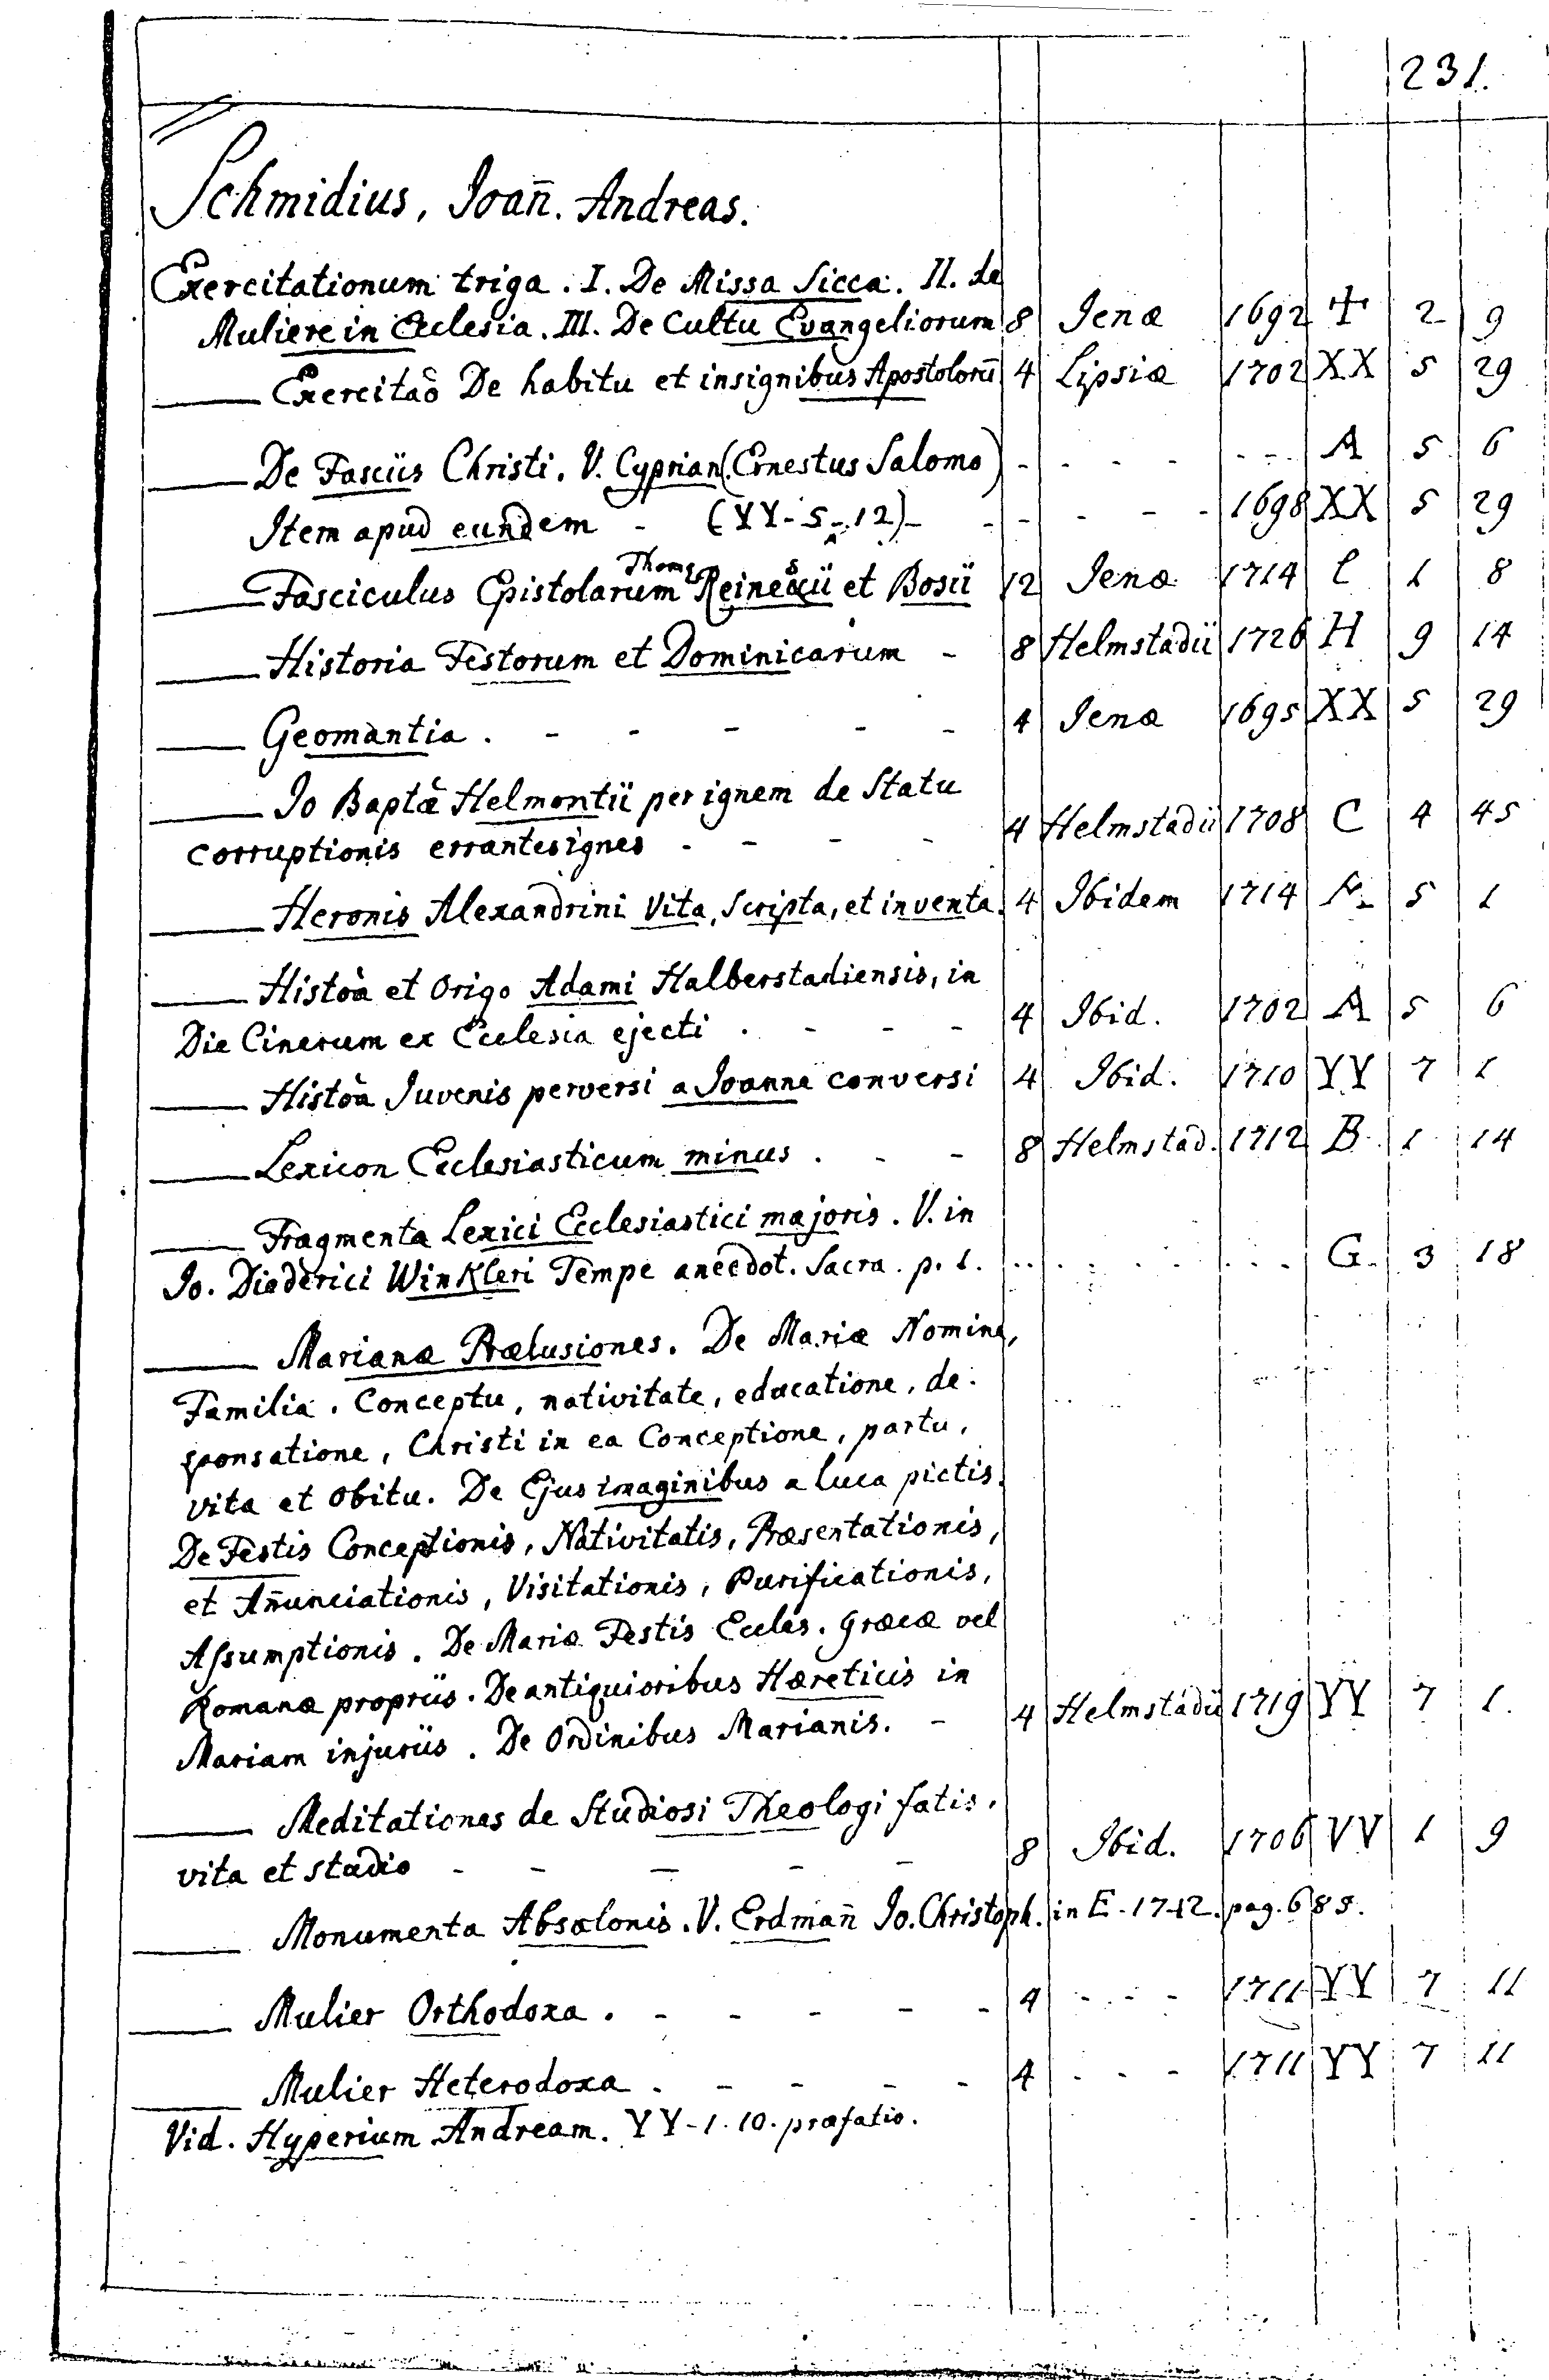 231.
Schmidius, Joan̄. Andreas.
Exercitationum triga. I. De Missa Sicca. II. de
Muliere in Ecclesia. III. De Cultu Evangeliorum 8 Jenæ 1692 ☩ 2 9
—— Exercitaô De habitu et insignibus Apostolorū 4 Lipsiæ 1702 XX 5 29
—— De Fasciis Christi. V. Cyprian (Ernestus Salomo) - - - - - - - A 5 6
Item apud eundem - (YY-5-12) - - - - - - 1698 XX 5 29
—— Fasciculus Epistolarum Thomæ Reinesii et Bosii 12 Jenæ 1714 C 1 8
—— Historia Festorum et Dominicarum - 8 Helmstadii 1726 H 9 14
—— Geomantia. - - - - - 4 Jenæ 1695 XX 5 29
—— Jo Baptæ̂ Helmontii per ignem de Statu
corruptionis errantes ignes - - - - 4 Helmstadii 1708 C 4 45
—— Heronis Alexandrini Vita, Scripta, et inventa. 4 Ibidem 1714 5 1
—— Histoà et Origo Adami Halberstadiensis, in
Die Cinerum ex Ecclesia ejecti . - - - 4 Ibid. 1702 A 5 6
—— Histoà Juvenis perversi a Joanne conversi 4 Ibid. 1710 YY 7 1
—— Lexicon Ecclesiasticum minus . - - 8 Helmstad. 1712 B. 1 14
—— Fragmenta Lexici Ecclesiastici majoris. V. in
Jo. Diederici Winkleri Tempe anecdot. Sacra. p. 1. . . . . . . . . . G. 3 18
—— Marianæ Prælusiones. De Mariæ Nomine,
Familia, Conceptu, nativitate, educatione, de-
sponsatione, Christi in ea Conceptione, partu,
vita et obitu. De Ejus imaginibus a Luca pictis.
De Festis Conceptionis, Nativitatis, Præsentationis,
et An̄unciationis, Visitationis, Purificationis,
Assumptionis. De Mariæ Festis Eccles. Græcæ vel
Romanæ propriis. De antiquioribus Hæreticis in
Mariam injuriis. De Ordinibus Marianis. - 4 Helmstadii 1719 YY 7 1.
—— Meditationes de Studiosi Theologi fatis,
vita et studio - - - - - 8 Ibid. 1706 VV 1 9
—— Monumenta Absalonis. V. Erdman̄ Jo. Christoph. in E-1742. pag. 685.
—— Mulier Orthodoxa. - - - - - 4 - - - 1711 YY 7 11
—— Mulier Heterodoxa. - - - - 4 - - - 1711 YY 7 11
Vid. Hyperium Andream. YY-1.10. præfatio.